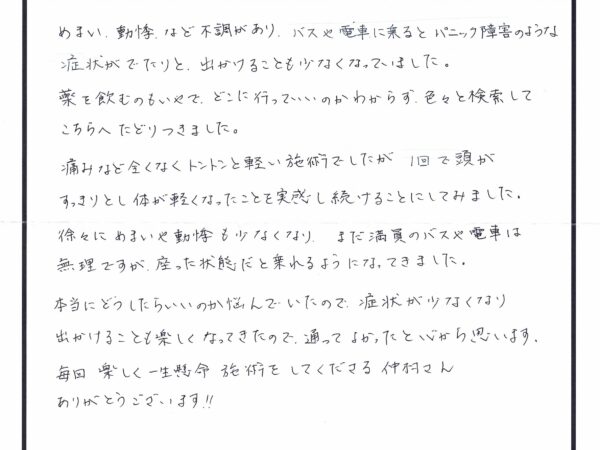 めまい、動悸、など不調があり、バスや電車に乗るとパニック障害のような
症状がでたりと、出かけることも少なくなっていました。
薬を飲むのもいやで、どこに行っていいのかわからず、色々と検索して
こちらへたどりつきました。
痛みなど全くなくトントンと軽い施術でしたが 1回で頭が
すっきりとし体が軽くなったことを実感し続けることにしてみました。
徐々にめまいや動悸も少なくなり、まだ満員のバスや電車は
無理ですが、座った状態だと乗れるようになってきました。
本当にどうしたらいいのか悩んでいたので、症状が少なくなり
出かけることも楽しくなってきたので、通ってよかったと心から思います。
毎回 楽しく一生懸命 施術をしてくださる仲村さん
ありがとうございます!!